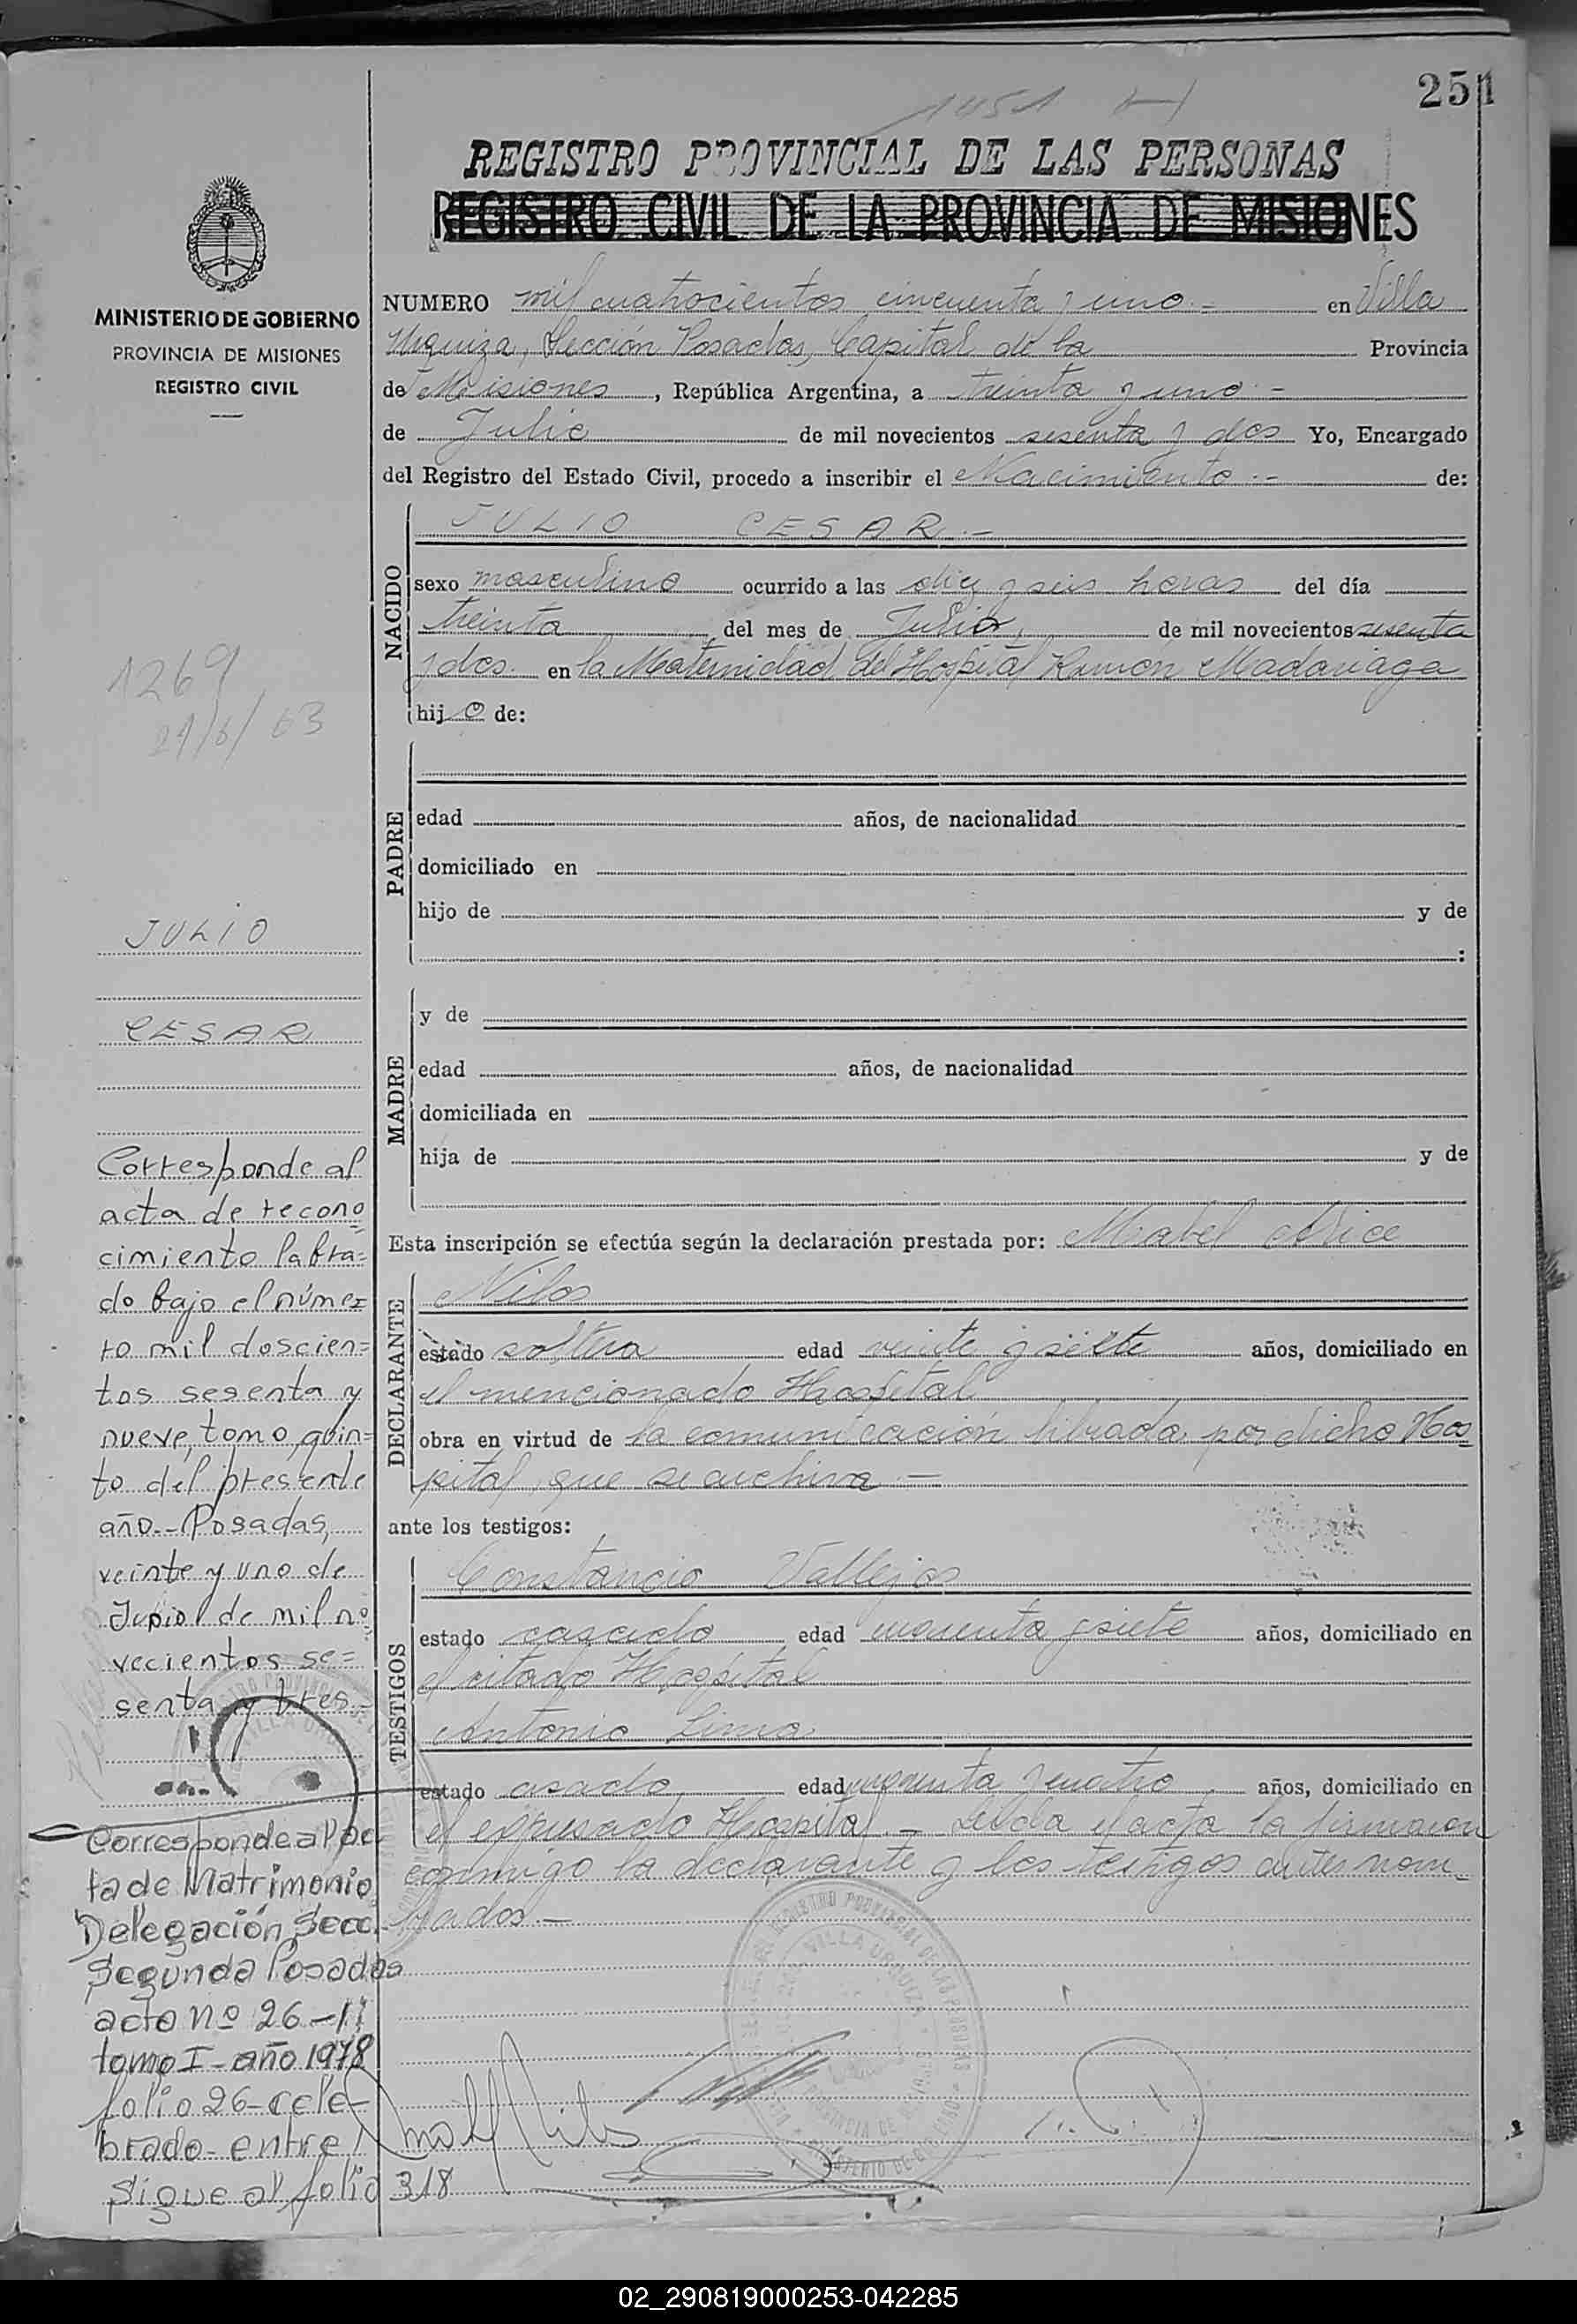 251
1451
REGISTRO PROVINCIAL DE LAS PERSONAS
REGISTRO CIVIL DE LA PROVINCIA DE MISIONES
MINISTERIO DE GOBIERNO
PROVINCIA DE MISIONES
REGISTRO CIVIL
NUMERO mil cuatrocientos cincuenta y uno.- en Villa
Urquiza, Sección Posadas, Capital de la Provincia
de Misiones, República Argentina, a treinta y uno.-
de Julio de mil novecientos sesenta y dos Yo, Encargado
del Registro del Estado Civil, procedo a inscribir el Nacimiento.- de:
NACIDO
JULIO CESAR.-
sexo masculino ocurrido a las diez y seis horas del día
treinta del mes de Julio, de mil novecientos sesenta
y dos en la Maternidad del Hospital Ramón Madariaga
hijo de:
1269
21/6/63
PADRE
edad años, de nacionalidad
domiciliado en
hijo de y de
:
JULIO
CESAR
MADRE
y de
edad años, de nacionalidad
domiciliada en
hija de y de
Esta inscripción se efectúa según la declaración prestada por: Mabel Alice
DECLARANTE
Nilos
estado soltera edad veinte y siete años, domiciliado en
el mencionado Hospital
obra en virtud de la comunicación librada por dicho Hos-
pital que se archiva.-
ante los testigos:
TESTIGOS
Constancio Vallejos
estado casado edad cuarenta y siete años, domiciliado en
el citado Hospital
Antonio Lima
estado casado edad cuarenta y cuatro años, domiciliado en
el expresado Hospital.- Leída el acta la firmaron
conmigo la declarante y los testigos antes nom-
brados.-
Corresponde al
acta de recono=
cimiento labra=
do bajo el núme=
ro mil doscien=
tos sesenta y
nueve, tomo quin=
to del presente
año.- Posadas,
veinte y uno de
Junio de mil no=
vecientos se=
senta y tres.-
Corresponde al ac
ta de Matrimonio
Delegación Secc.
Segunda Posadas
acto Nº 26-II
tomo I-año 1978
folio 26-cele-
brado-entre
Sigue al folio 318
VILLA URQUIZA
02_290819000253-042285